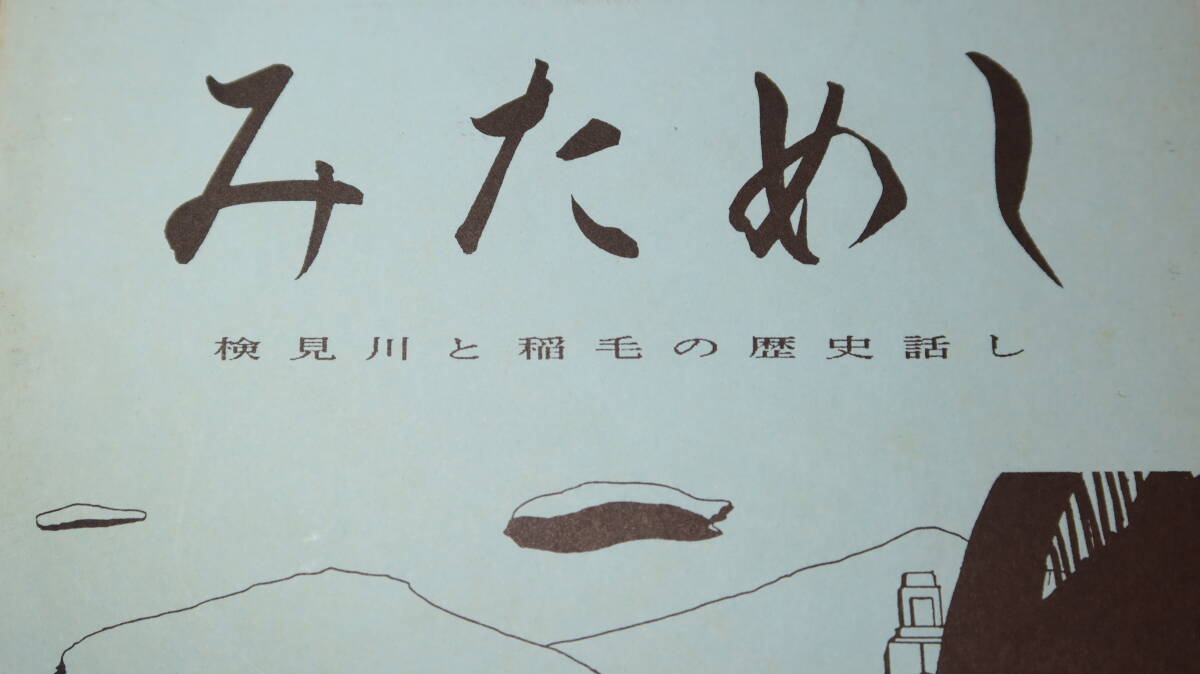 みためし
検見川と稲毛の歴史話し